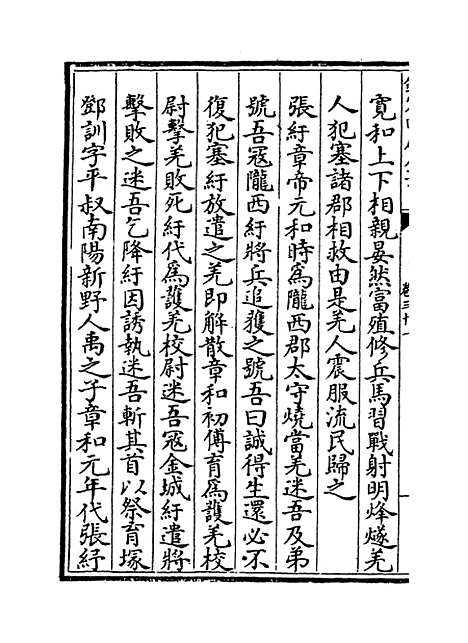 寛和上下相親晏然富殖修兵馬習戰射明烽燧羌
人犯塞諸郡相救由是羌人震服流民歸之
張紆章帝元和時為隴西郡太守燒當羌迷吾及弟
號吾寇隴西紆將兵追獲之號吾曰誠得生還必不
復犯塞紆放遣之羌即解散章和初傅育為護羌校
尉擊羌敗死紆代為護羌校尉迷吾冦金城紆遣將
擊敗之迷吾乞降紆因誘執迷吾斬其首以祭育塚
鄧訓字平叔南陽新野人禹之子章和元年代張紆